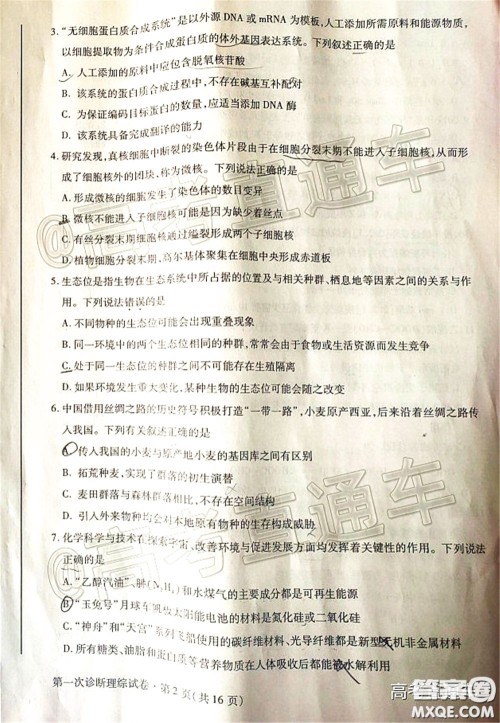 3. “无细胞蛋白质合成系统”是以外源 DNA 或 mRNA 为模板,人工添加所需原料和能源物质,
以细胞提取物为条件合成蛋白质的体外基因表达系统。下列叙述正确的是
A. 人工添加的原料中应包含脱氧核苷酸
B. 该系统的蛋白质合成过程中,不存在碱基互补配对
C. 为保证编码目标蛋白的数量,应适当添加 DNA 酶
D. 该系统具备完成翻译的能力
4. 研究发现,真核细胞中断裂的染色体片段由于在细胞分裂末期不能进入子细胞核,从而形
成了细胞核外的团块,称为微核。下列说法正确的是
A. 形成微核的细胞发生了染色体的数目变异
B. 微核不能进入子细胞可能是因为缺少着丝点
C. 有丝分裂末期细胞核通过缢裂形成两个子细胞核
D. 植物细胞分裂末期,高尔基体聚集在细胞中央形成赤道板
5. 生态位是指生物在生态系统中所占据的位置及与相关种群、栖息地等因素之间的关系与作
用。下列说法错误的是
A. 不同物种的生态位可能会出现重叠现象
B. 同一环境中的两个生态位相似的种群,常常会由于食物或生活资源而发生竞争
C. 处于同一生态位的种群之间不可能存在生殖隔离
D. 如果环境发生重大变化,某种生物的生态位可能会随之改变
6. 中国借用丝绸之路的历史符号积极打造“一带一路”,小麦原产西亚,后来沿着丝绸之路传
入我国。下列有关叙述正确的是
A. 传入我国的小麦与原产地小麦的基因库之间有区别
B. 拓荒种麦,实现了群落的初生演替
C. 麦田群落与森林群落相比,不存在空间结构
D. 引入外来物种均会对本地原有物种的生存构成威胁
7. 化学科学与技术在探索宇宙、改善环境与促进发展方面均发挥着关键性的作用。下列说法
正确的是
A. “乙醇汽油”、肼(N₂H₄)和水煤气的主要成分都是可再生能源
B. “玉兔号”月球车帆板太阳能电池的材料是氮化硅或二氧化硅
C. “神舟”和“天宫”系列飞船使用的碳纤维材料、光导纤维都是新型无机非金属材料
D. 所有糖类、油脂和蛋白质等营养物质在人体吸收后都能被水解利用
第一次诊断理综试卷·第 2 页(共 16 页)
@高考直通车
@高考直通车
高考
答案圈
MXQE.COM